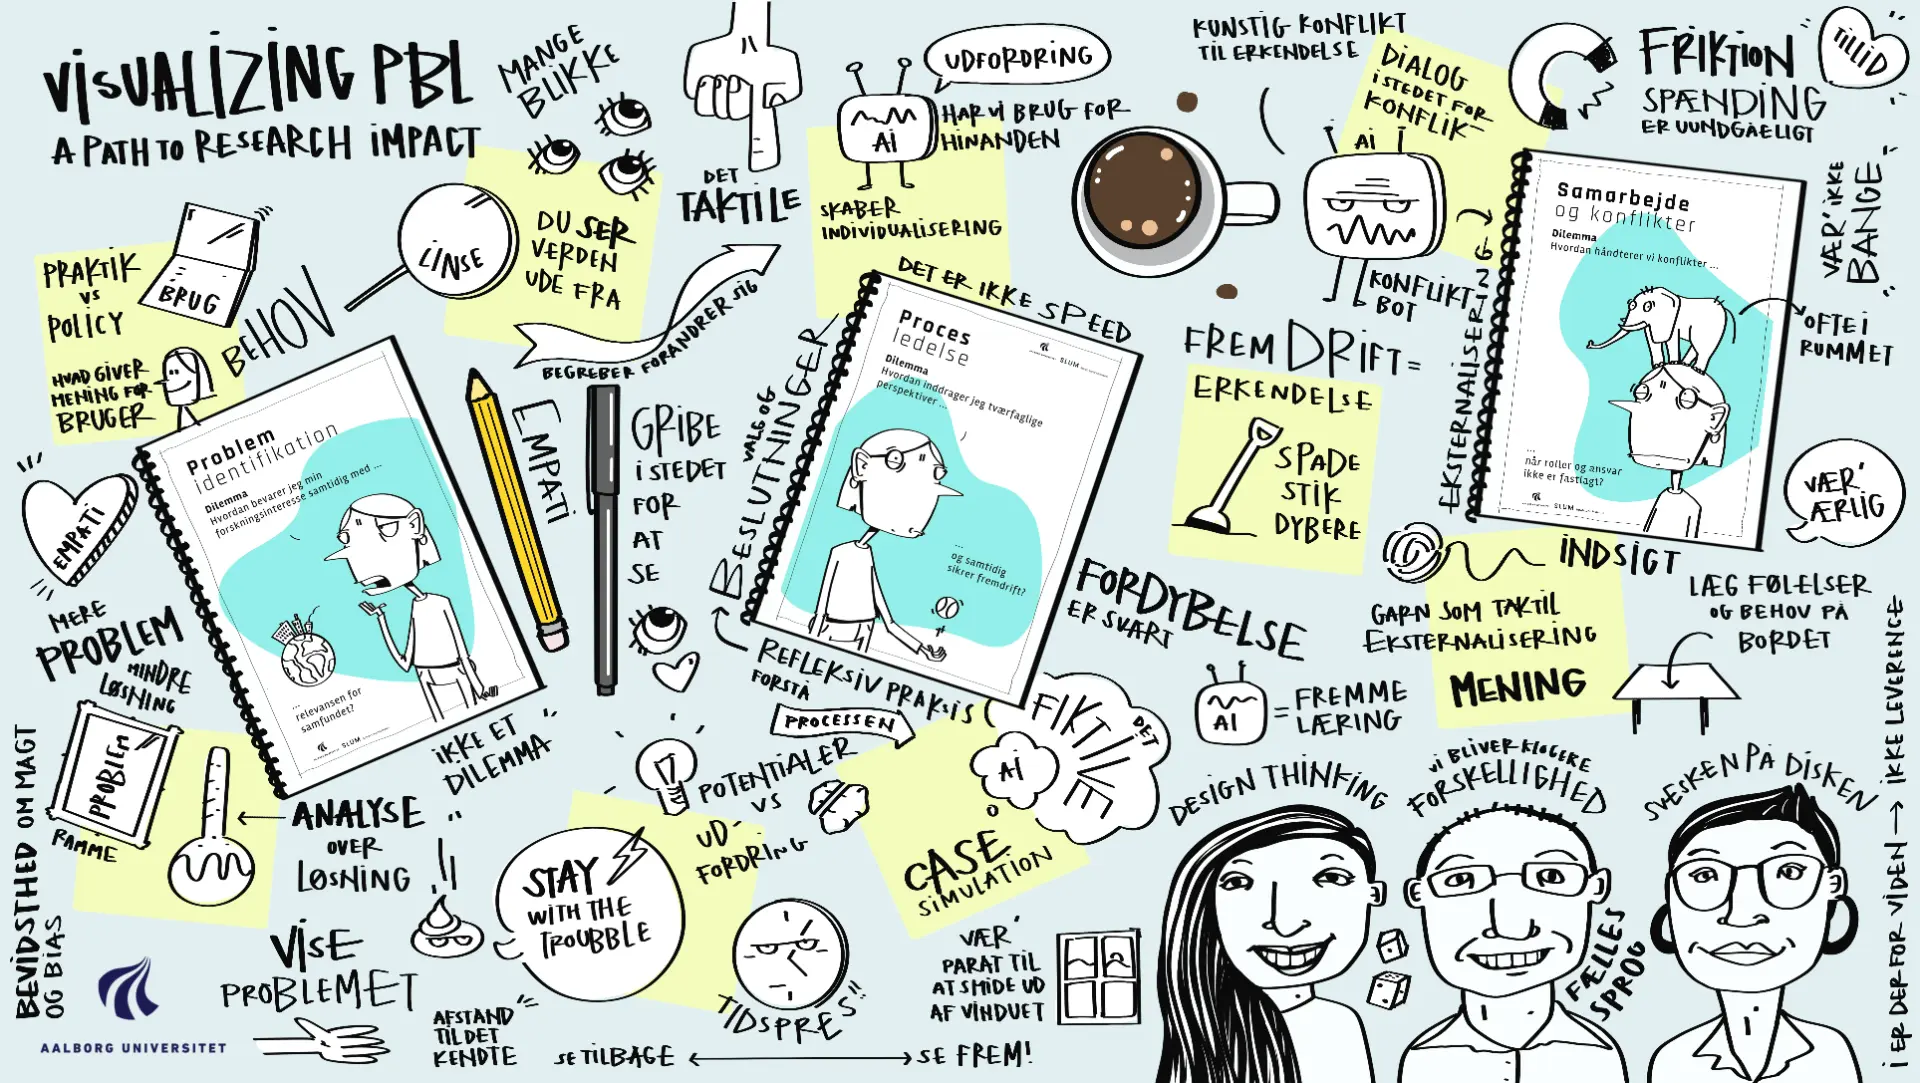 VISUALIZING PBL
A PATH TO RESEARCH IMPACT
MANGE
BLIKKE
DET
TAKTILE
UDFORDRING
AI
HAR VI BRUG FOR
HINANDEN
SKABER
INDIVIDUALISERING
KUNSTIG KONFLIKT
TIL ERKENDELSE
DIALOG
I STEDET FOR
KONFLIK-
AI
KONFLIKT-
BOT
FRIKTION
SPÆNDING
ER UUNDGÅELIGT
TILLID
VÆR' IKKE
BANGE
PRAKTIK
VS
POLICY
HVAD GIVER
MENING FOR
BRUGER
BRUG
BEHOV
LINSE
DU SER
VERDEN
UDE FRA
BEGREBER FORANDRER SIG
Problem
identifikation
Dilemma
Hvordan bevarer jeg min
forskningsinteresse samtidig med ...
...
relevansen for
samfundet?
SLUM
EMPATI
MERE
PROBLEM
MINDRE
LØSNING
IKKE ET
DILEMMA
EMPATI
GRIBE
I STEDET
FOR
AT
SE
VALG OG
BESLUTNINGER
DET ER IKKE SPEED
Proces
ledelse
SLUM
Dilemma
Hvordan inddrager jeg tværfaglige
perspektiver ...
...
og samtidig
sikrer fremdrift?
REFLEKSIV PRAKSIS
FORSTÅ
PROCESSEN
FREMDRIFT =
ERKENDELSE
SPADE
STIK
DYBERE
FORDYBELSE
ER SVÆRT
EKSTERNALISERING
Samarbejde
og konflikter
Dilemma
Hvordan håndterer vi konflikter ...
...
når roller og ansvar
ikke er fastlagt?
SLUM
OFTE I
RUMMET
VÆR'
ÆRLIG
INDSIGT
GARN SOM TAKTIL
EKSTERNALISERING
MENING
LÆG FØLELSER
OG BEHOV PÅ
BORDET
AI
= FREMME
LÆRING
PROBLEM
RAMME
ANALYSE
OVER
LØSNING
BEVIDSTHED OM MAGT
OG BIAS
VISE
PROBLEMET
AALBORG UNIVERSITET
AFSTAND
TIL DET
KENDTE
STAY
WITH THE
TROUBBLE
POTENTIALER
VS
UD-
FORDRING
TIDSPRES
SE TILBAGE
SE FREM!
DET
FIKTIVE
AI
CASE
SIMULATION
VÆR'
PARAT TIL
AT SMIDE UD
AF VINDUET
DESIGN THINKING
VI BLIVER KLOGERE
FORSKELLIGHED
SVESKEN PÅ DISKEN
FÆLLES
SPROG
I ER DER FOR VIDEN → IKKE LEVERENCE